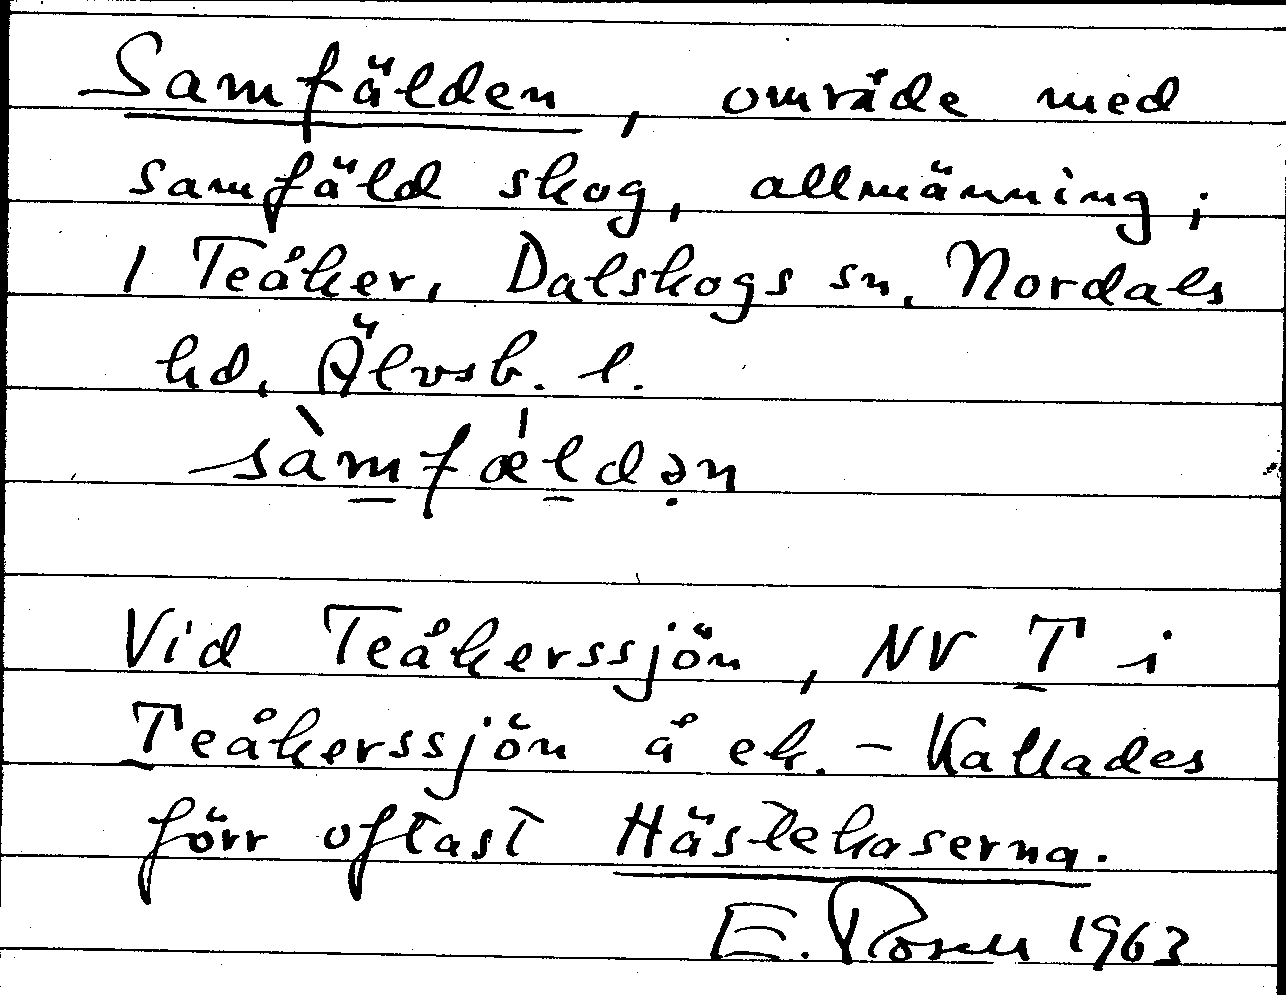 Samfälden, område med
samfäld skog, allmänning;
i Teåker, Dalskogs sn, Nordals
hd, Älvsb. l.
sàmfæ̍ldən
Vid Teåkerssjön, NV T i
Teåkerssjön å ek. - Kallades
förr oftast Hästekaserna.
E. Rosell 1963